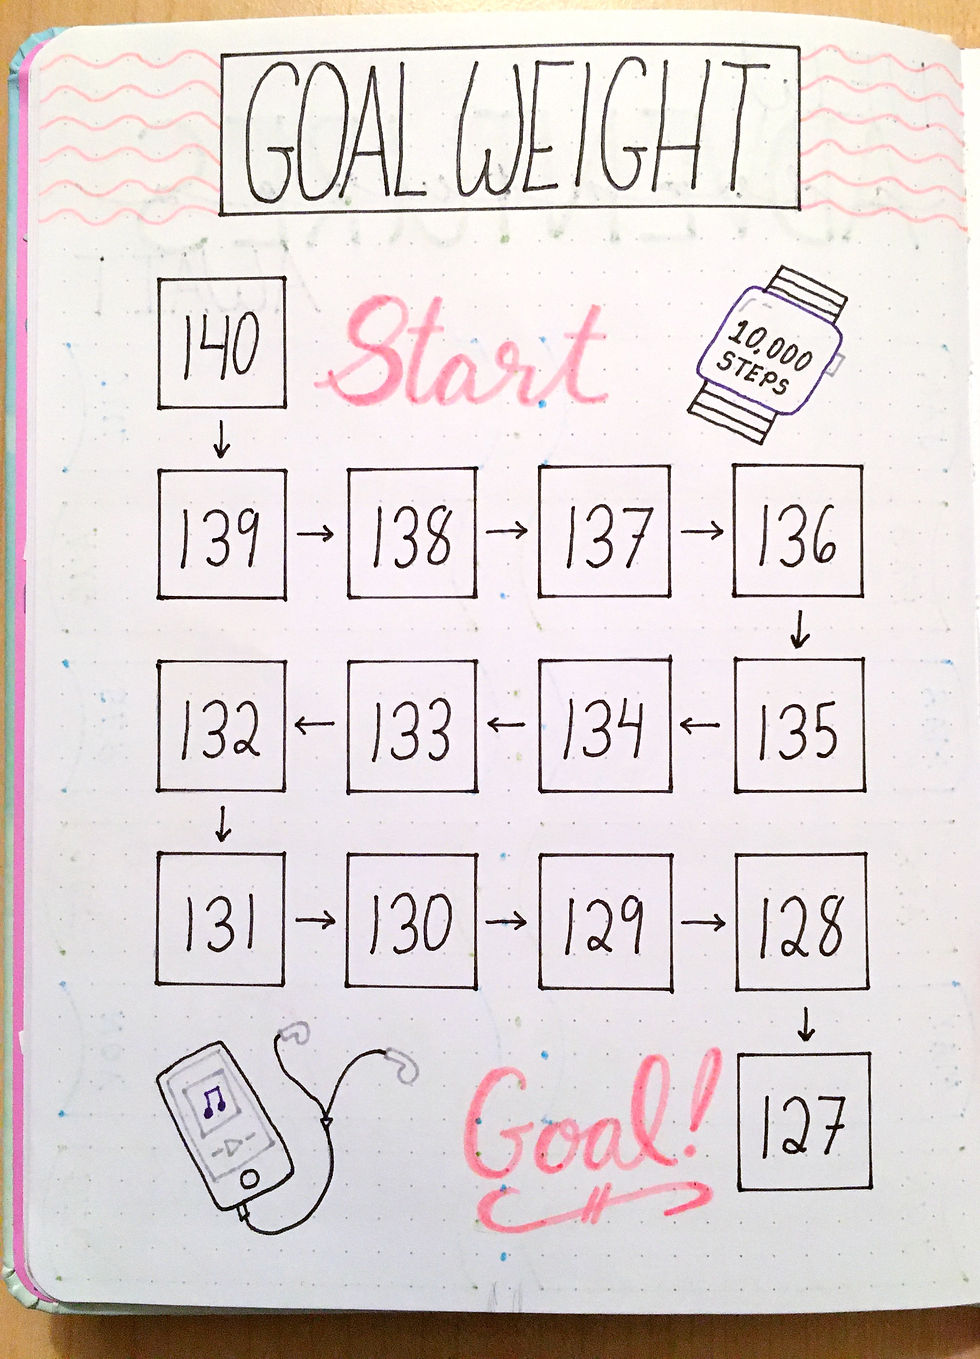 GOAL WEIGHT
140 Start
10,000
STEPS
139 → 138 → 137 → 136
132 ← 133 ← 134 ← 135
131 → 130 → 129 → 128
Goal! 127